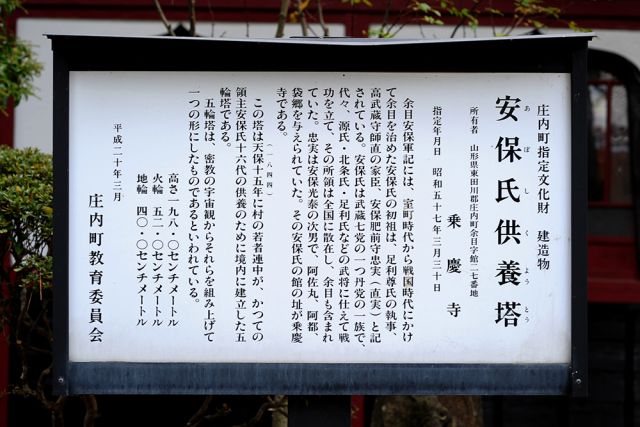 庄内町指定文化財　建造物
安保氏供養塔
あぼしくようとう
所有者　山形県東田川郡庄内町余目字館二七番地
乗慶寺
指定年月日　昭和五十七年三月三十日
余目安保軍記には、室町時代から戦国時代にかけ
て余目を治めた安保氏の初祖は、足利尊氏の執事、
高武蔵守師直の家臣、安保肥前守忠実（直実）と記
されている。安保氏は武蔵七党の一つ丹党の一族で、
代々、源氏・北条氏・足利氏などの武将に仕えて戦
功を立て、その所領は全国に散在し、余目も含まれ
ていた。忠実は安保光泰の次男で、阿佐丸、阿都、
袋郷を与えられていた。その安保氏の館の址が乗慶
寺である。
この塔は天保十五年に村の若者連中が、かつての
（一八四四）
領主安保氏十六代の供養のために境内に建立した五
輪塔である。
五輪塔は、密教の宇宙観からそれらを組み上げて
一つの形にしたものであるといわれている。
高さ一九八・〇センチメートル
火輪　五二・〇センチメートル
地輪　四〇・〇センチメートル
平成二十年三月
庄内町教育委員会